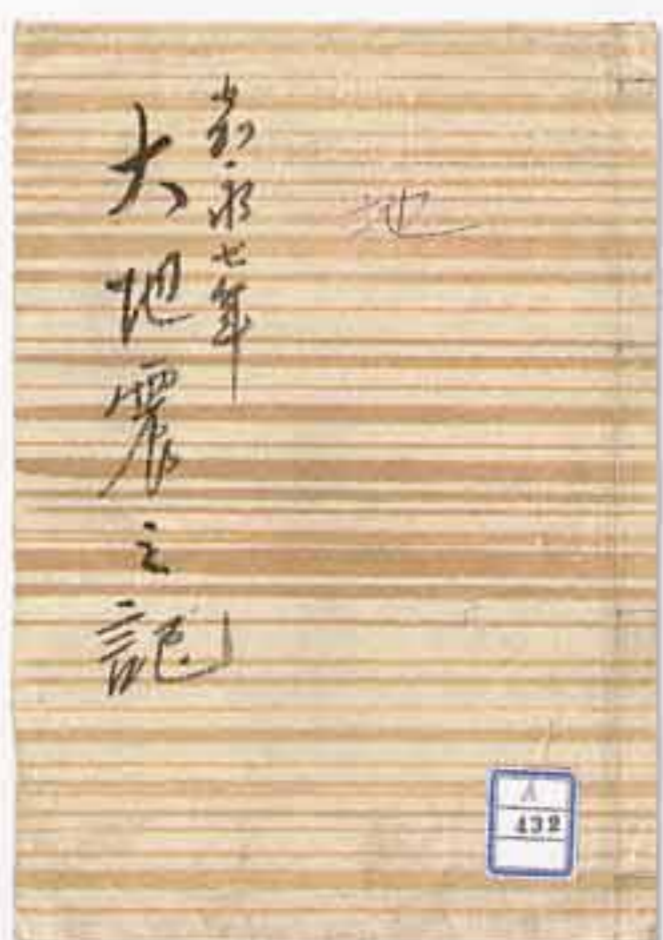 地
嘉永七年
大地震之記
A
432